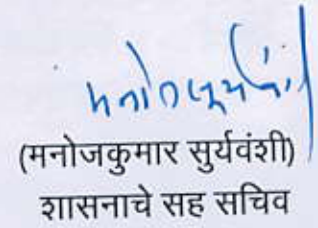 (मनोजकुमार सुर्यवंशी)
शासनाचे सह सचिव